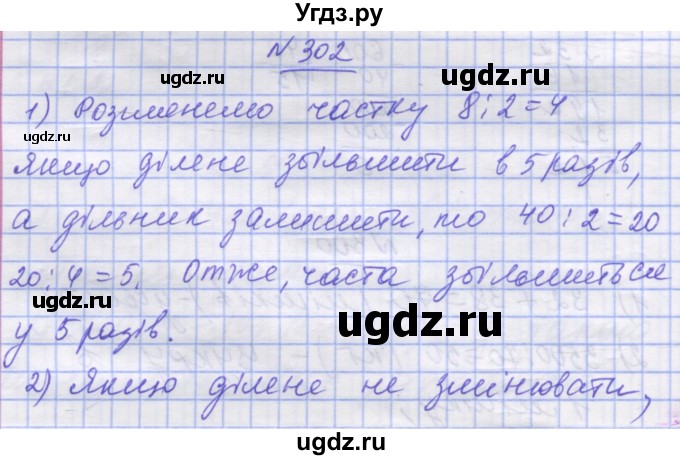 Угдз.ру
N 302
1) Розгленемо частку 8:2=4
Якщо ділене збільшити в 5 разів,
а дільник залишити, то 40:2=20
20:4=5. Отже, часта збільшиться
у 5 разів.
2) Якщо ділене не змінювати,
ugdz.ru
ugdz.ru
ugdz.ru
ugdz.ru
ugdz.ru
ugdz.ru
ugdz.ru
ugdz.ru
ugdz.ru